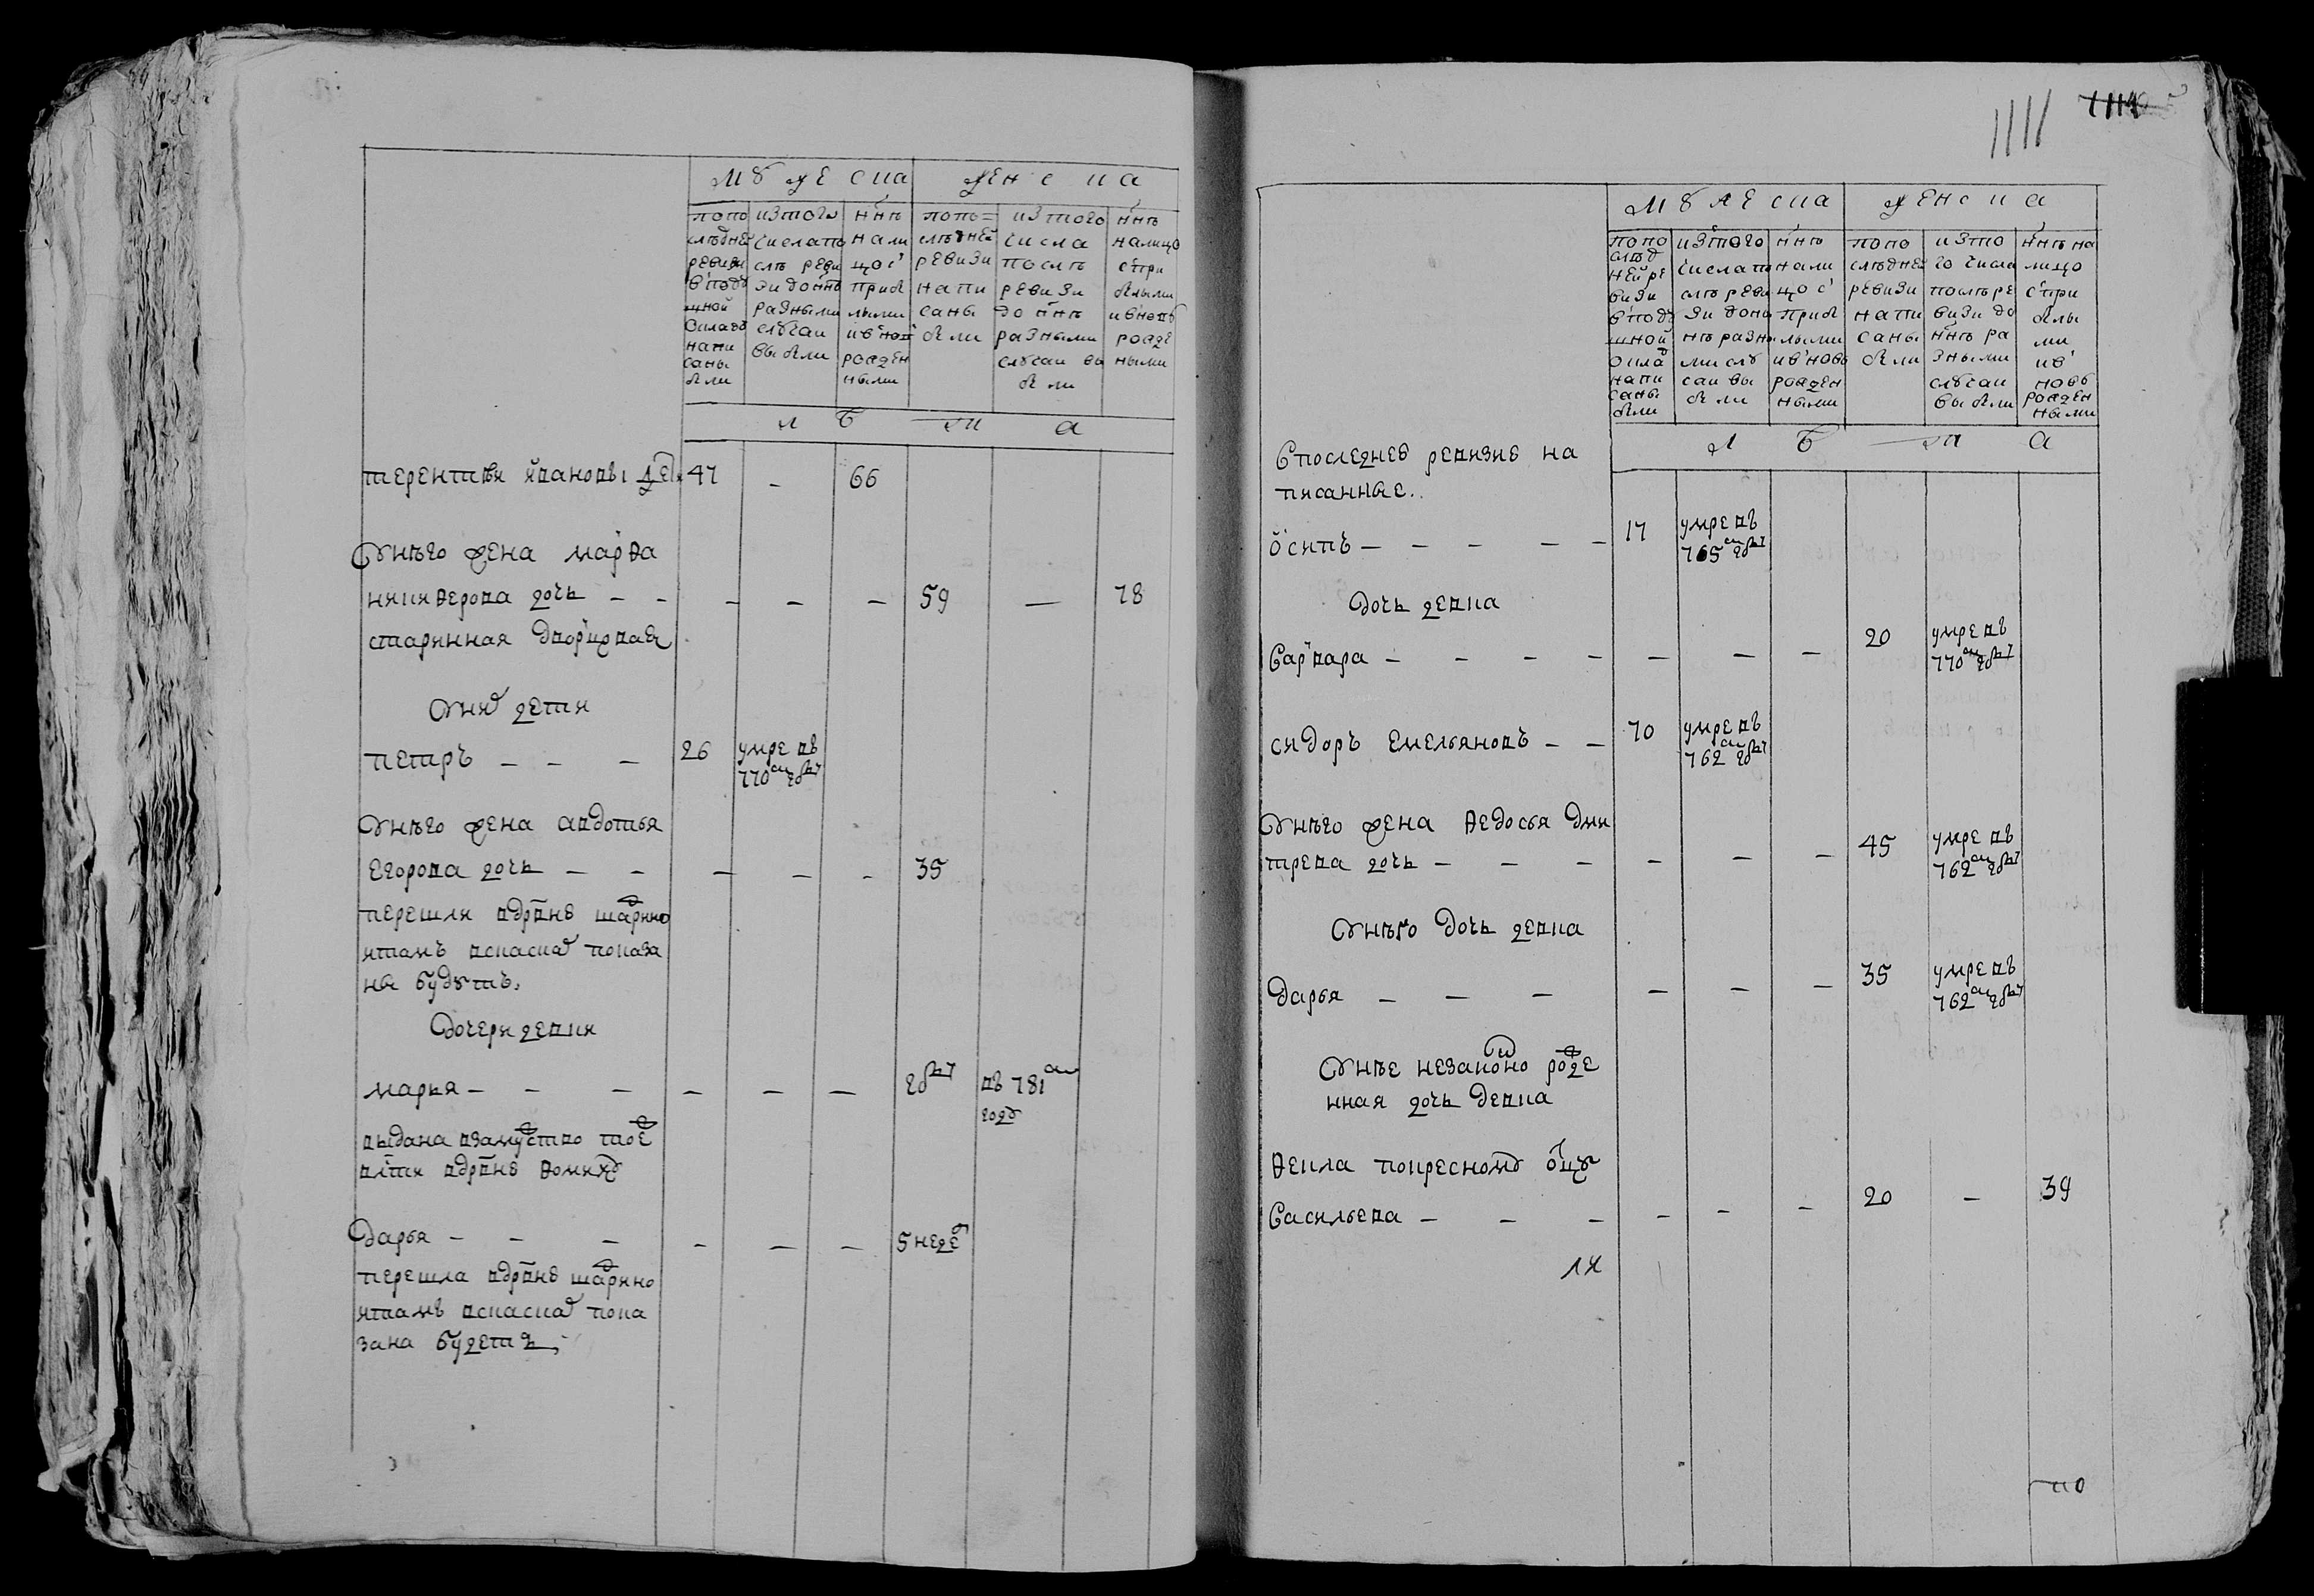 мужеска женска
по по
следней
ревизи
в поду
шной
окладъ
напи
саны
были
из того
числа по
сле реви
зи до ннѣ
разными
случаи
выбыли
ннѣ
нали
цо с
прибы
лыми
и в нов
рожден
ными
по по=
следней
ревизи
напи
саны
были
из того
числа
после
ревизи
до ннѣ
разными
случаи вы
были
ннѣ
налицо
с при
былыми
и вновь
рожде
ными
л ѣ т а
терентья ивановы 47 - 66
У него жена марѳа
никиѳорова дочь - - - - - 59 — 78
старинная дворцовая
У них дети
петръ - - - 26 умре въ
770м году
У него жена авдотья
егорова дочь - - - - - 35
перешли в дрвню шарино
и тамъ в сказках показа
ны будутъ.
Дочери девки
марья - - - - - - году въ 781м
году
выдана взамужство тое ж
вотчи в дрвню ѳоминух
Дарья - - - - - - 5 недел
перешла в дрвню шарино
и тамъ в сказках пока
зана будетъ
1111
мужеска женска
по по
след
ней ре
визи
в поду
шной
оклад
напи
саны
были
из того
числа по
сле реви
зи до ны
нѣ разны
ми слу
чаи вы
были
ннѣ
нали
цо с
прибы
лыми
и вновь
рожден
ными
по по
следней
ревизи
напи
саны
были
из то
го числа
после ре
визи до
ннѣ ра
зными
случаи
выбыли
ннѣ на
лицо
с при
былы
ми
и в
новь
рожден
ными
л ѣ т а
В последнее ревизие на
писанные..
Осипъ - - - - - 17 умре въ
765м году
Дочь девка
Варвара - - - - - - - 20 умре въ
770м году
сидоръ емельяновъ - - 70 умре въ
762м году
У него жена ѳедосья дми
трева дочь - - - - - - 45 умре въ
762м году
У него дочь девка
дарья - - - - - - 35 умре въ
762м году
У нее незаконо рожде
нная дочь девка
ѳекла по кресному отцу
Васильева - - - - - - 20 - 39
ли
ко